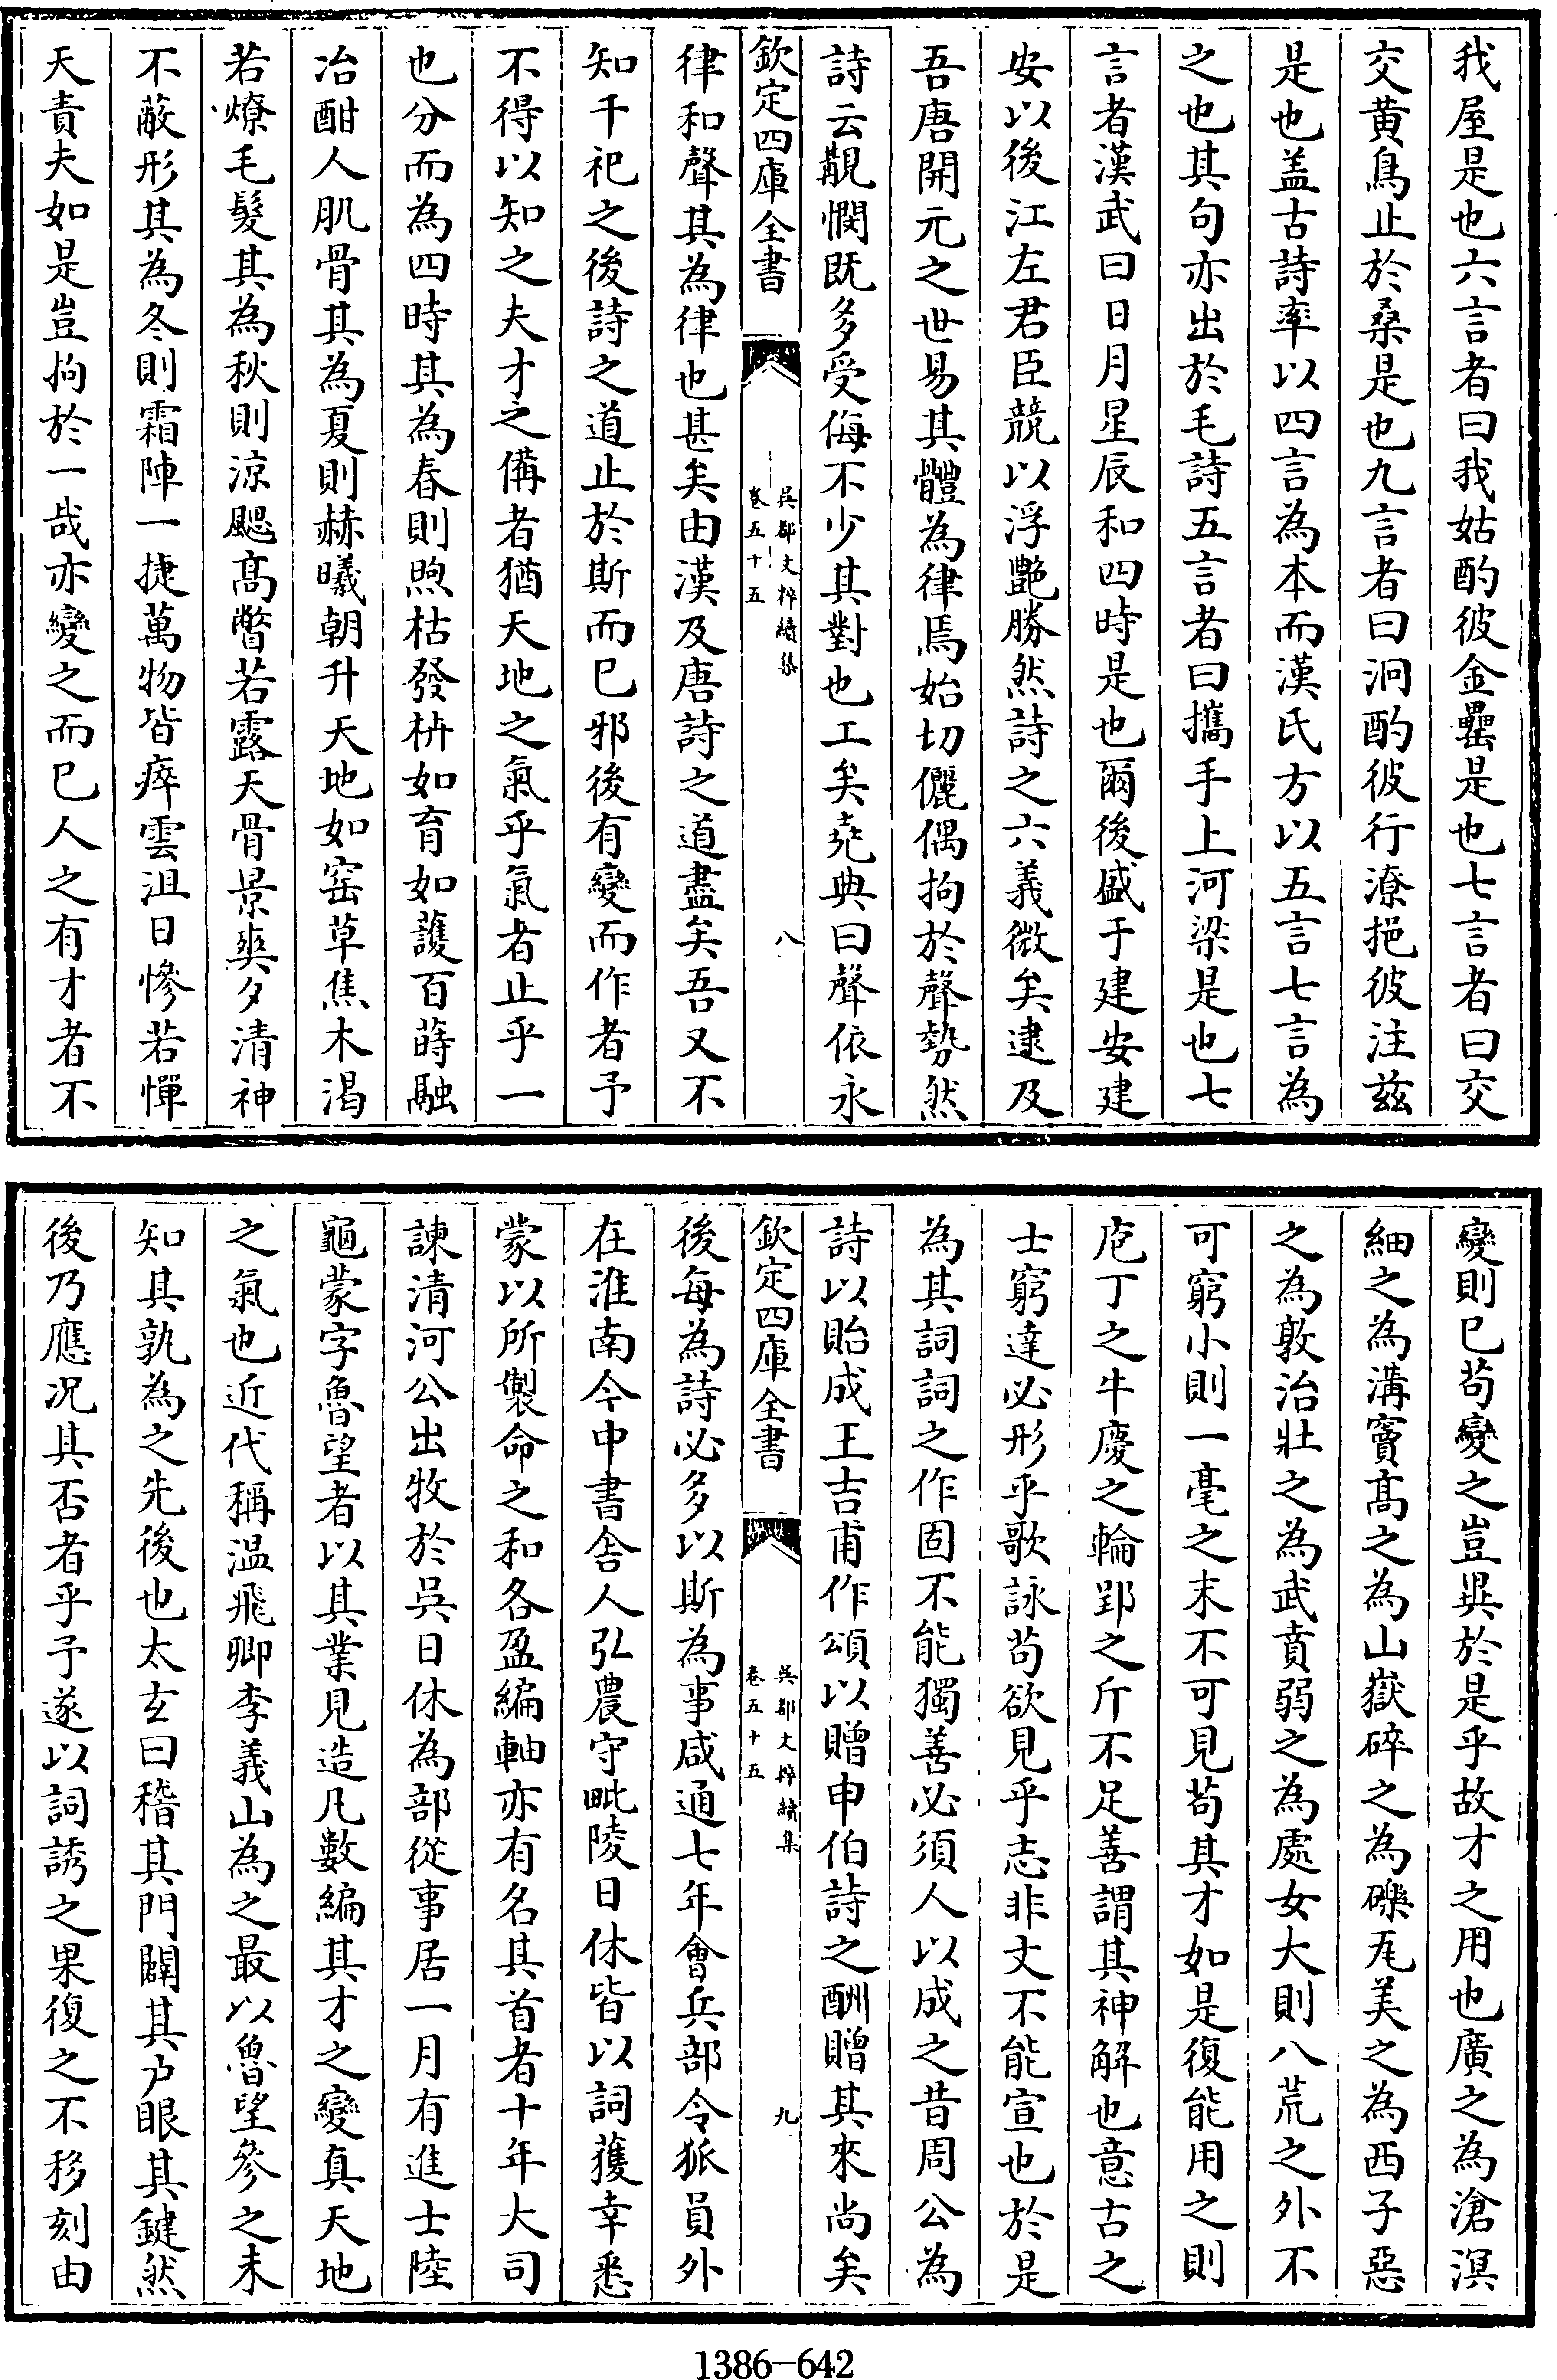 我屋是也六言者曰我姑酌彼金罍是也七言者曰交
交黄鳥止於桑是也九言者曰泂酌彼行潦挹彼注兹
是也盖古詩率以四言為本而漢氏方以五言七言為
之也其句亦出於毛詩五言者曰攜手上河梁是也七
言者漢武曰日月星辰和四時是也爾後盛于建安建
安以後江左君臣競以浮艷勝然詩之六義微矣逮及
吾唐開元之世易其體為律焉始切儷偶拘於聲勢然
詩云覯憫既多受侮不少其對也工矣堯典曰聲依永
欽定四庫全書
吳都文粹續集
卷五十五
八
律和聲其為律也甚矣由漢及唐詩之道盡矣吾又不
知千祀之後詩之道止於斯而已邪後有變而作者予
不得以知之夫才之備者猶天地之氣乎氣者止乎一
也分而為四時其為春則煦枯發枿如育如蘐百蒔融
冶酣人肌骨其為夏則赫曦朝升天地如窑草焦木渴
若燎毛髮其為秋則涼颸髙瞥若露天骨景爽夕清神
不蔽形其為冬則霜陣一捷萬物皆瘁雲沮日慘若憚
天責夫如是豈拘於一哉亦變之而已人之有才者不
變則已苟變之豈異於是乎故才之用也廣之為滄溟
細之為溝竇髙之為山嶽碎之為礫瓦美之為西子惡
之為敦洽壯之為武賁弱之為處女大則八荒之外不
可窮小則一毫之末不可見苟其才如是復能用之則
庖丁之牛慶之輪郢之斤不足善謂其神解也意古之
士窮達必形乎歌詠苟欲見乎志非文不能宣也於是
為其詞詞之作固不能獨善必須人以成之昔周公為
詩以貽成王吉甫作頌以贈申伯詩之酬贈其來尚矣
欽定四庫全書
吳都文粹續集
卷五十五
九
後每為詩必多以斯為事咸通七年會兵部令狐員外
在淮南今中書舍人弘農守毗陵日休皆以詞獲幸悉
蒙以所製命之和各盈編軸亦有名其首者十年大司
諫清河公出牧於吳日休為部從事居一月有進士陸
龜蒙字魯望者以其業見造凡數編其才之變真天地
之氣也近代稱溫飛卿李義山為之最以魯望參之未
知其孰為之先後也太玄曰稽其門闢其户眼其鍵然
後乃應况其否者乎予遂以詞誘之果復之不移刻由
1386-642